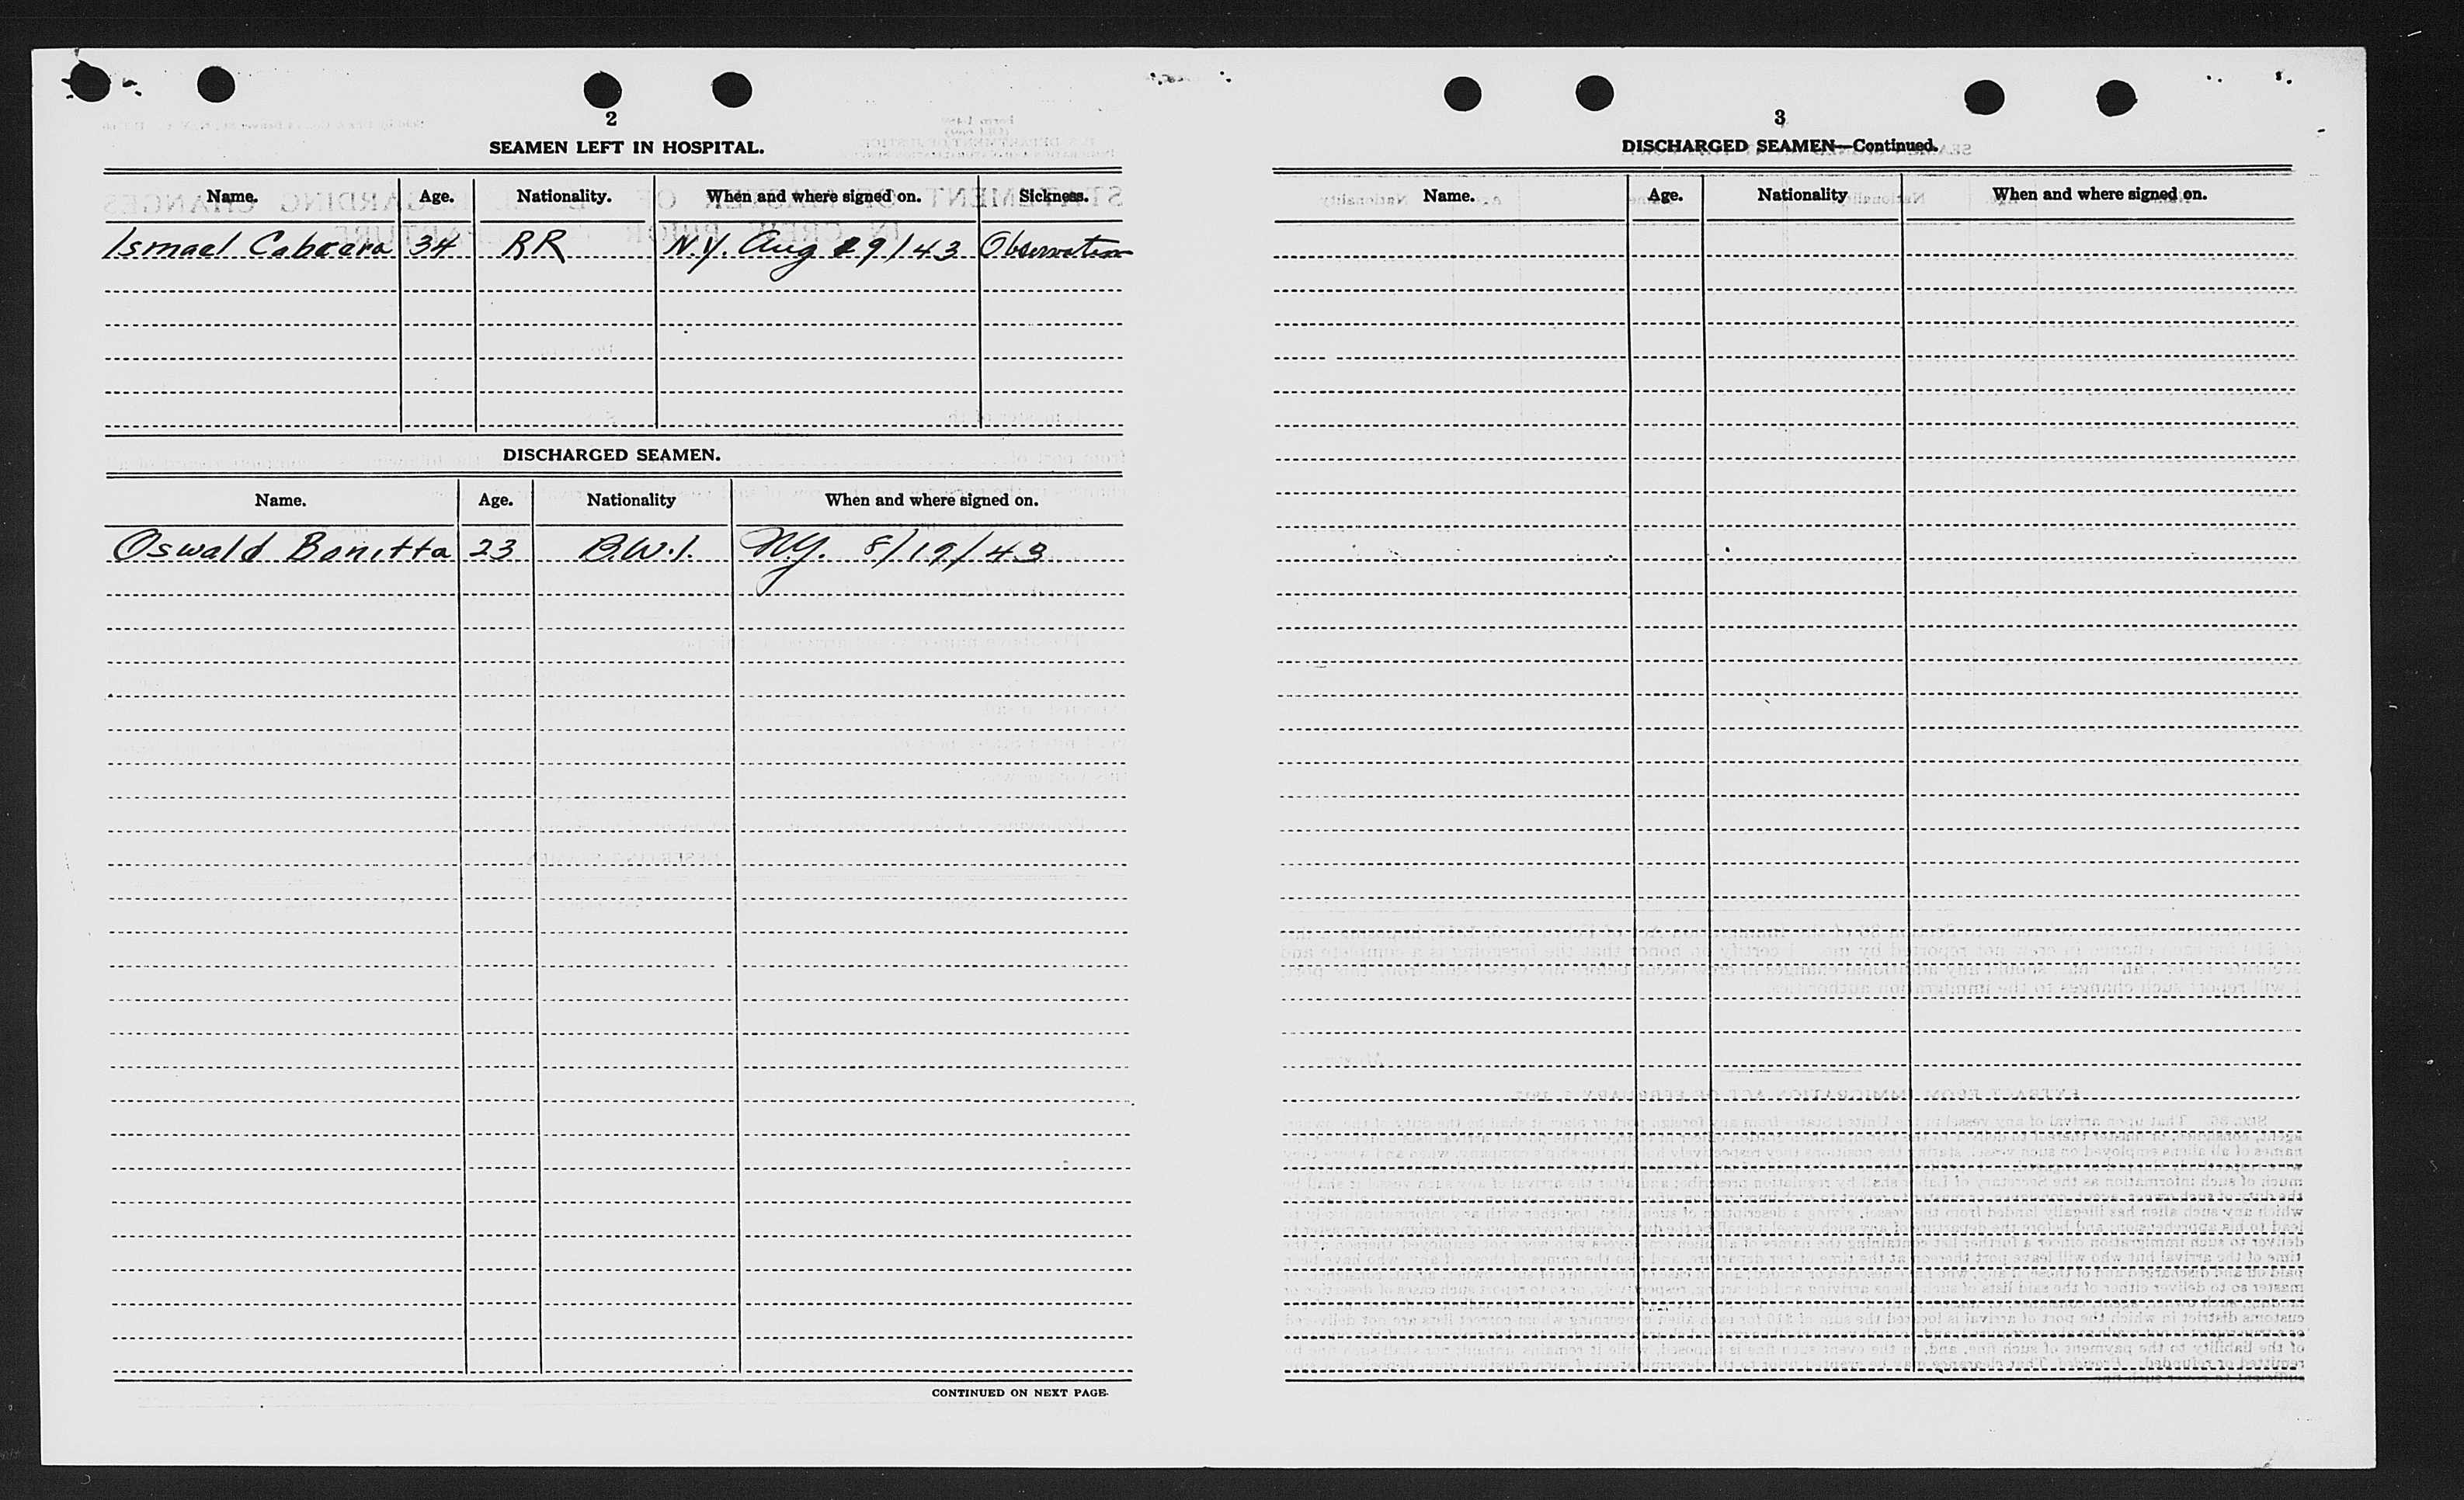 2
SEAMEN LEFT IN HOSPITAL.
Name. Age. Nationality. When and where signed on. Sickness.
Ismael Cabrera 34 RR N.Y. Aug 29/43 Observation
DISCHARGED SEAMEN.
Name. Age. Nationality When and where signed on.
Oswald Bonitta 23 B.W.I. N.Y. 8/19/43
CONTINUED ON NEXT PAGE.
3
DISCHARGED SEAMEN—Continued.
Name. Age. Nationality When and where signed on.